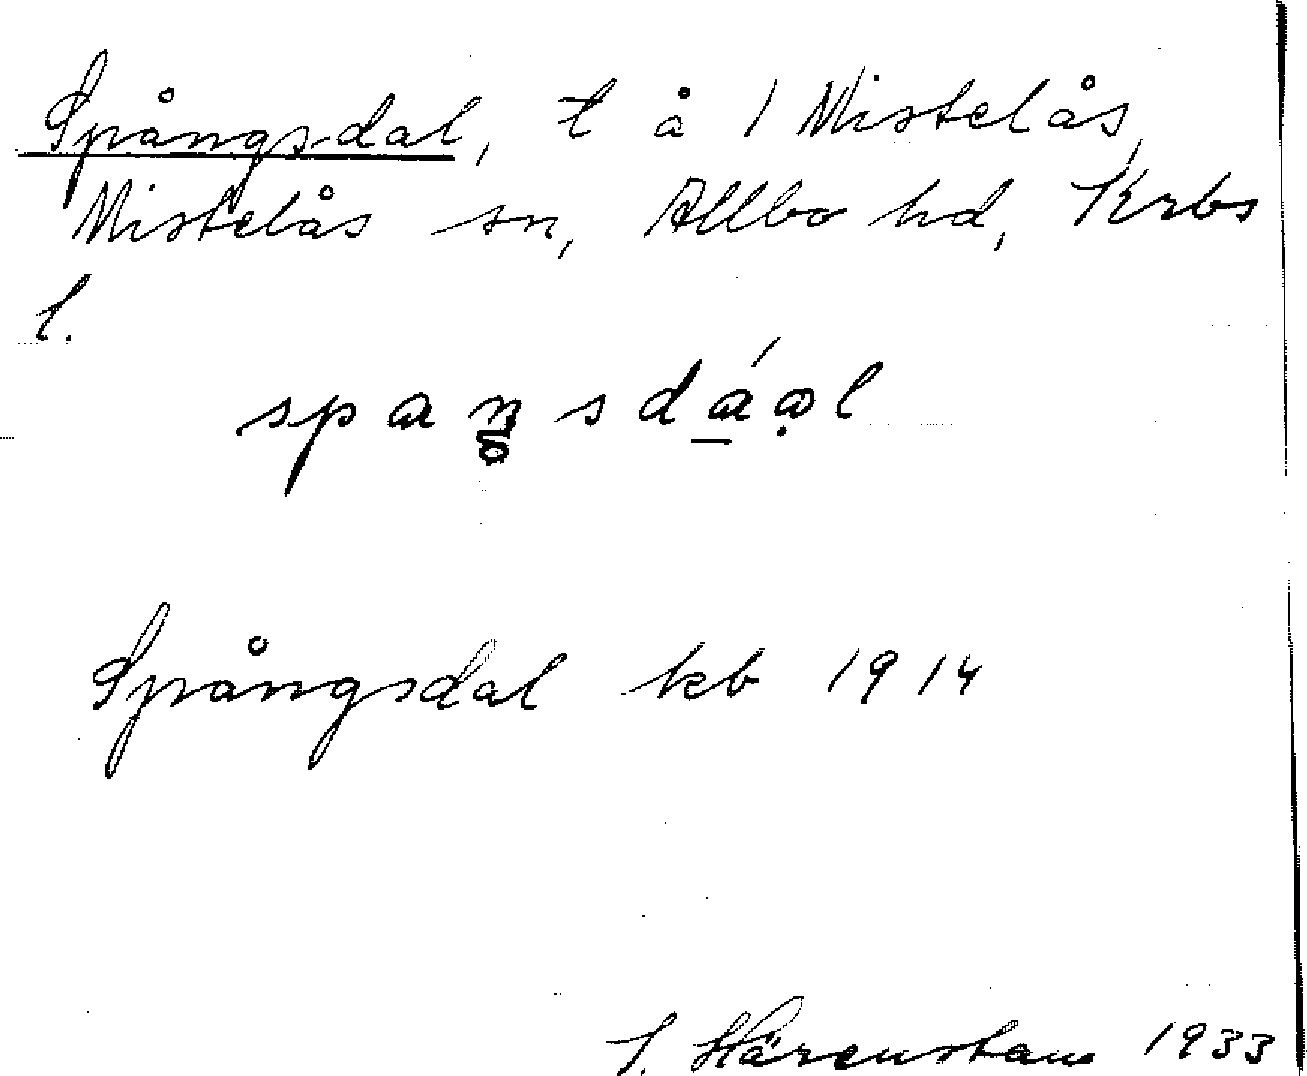 Spångsdal, t å 1 Mistelås,
Mistelås sn, Allbo hd, Krbs
l.
spaŋsdáal
Spångsdal kb 1914
1933